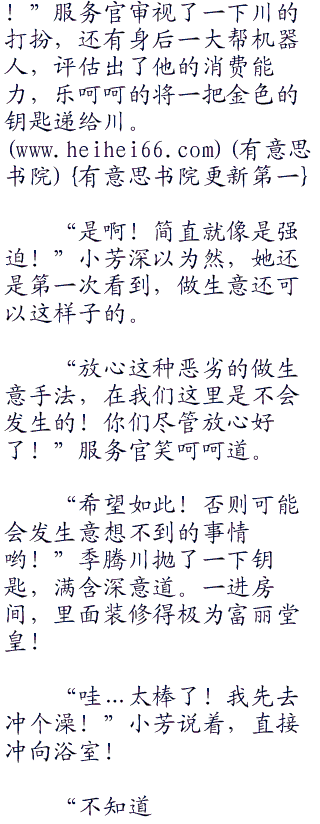 ！”服务官审视了一下川的
打扮，还有身后一大帮机器
人，评估出了他的消费能
力，乐呵呵的将一把金色的
钥匙递给川。
(www.heihei66.com)(有意思
书院) {有意思书院更新第一}
“是啊！简直就像是强
迫！”小芳深以为然，她还
是第一次看到，做生意还可
以这样子的。
“放心这种恶劣的做生
意手法，在我们这里是不会
发生的！你们尽管放心好
了！”服务官笑呵呵道。
“希望如此！否则可能
会发生意想不到的事情
哟！”季腾川抛了一下钥
匙，满含深意道。一进房
间，里面装修得极为富丽堂
皇！
“哇…太棒了！我先去
冲个澡！”小芳说着，直接
冲向浴室！
“不知道